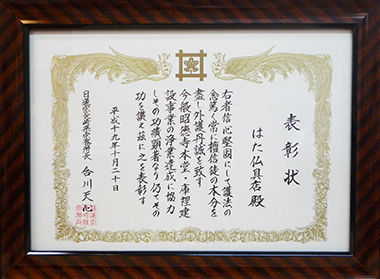 表彰状
はた仏具店 殿
右者信心堅固にして護法の
念篤く常に檀信徒の本分を
盡し外護丹誠を致す
今般昭徳寺本堂・庫裡建
設事業の浄業達成に協力
しその功績顕著なり仍てその
功を讃え茲に之を表彰す
平成十九年十月二十日
日蓮宗長崎県宗務所長 合川天